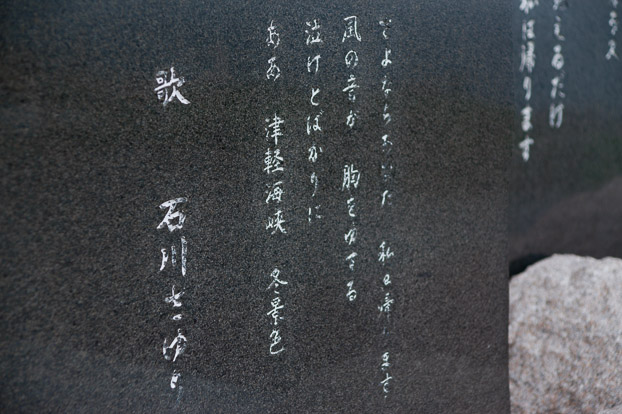 見えるだけ
私は帰ります
さよならあなた　私は帰ります
風の音が　胸をゆする
泣けとばかりに
ああ　津軽海峡　冬景色
歌　石川さゆり